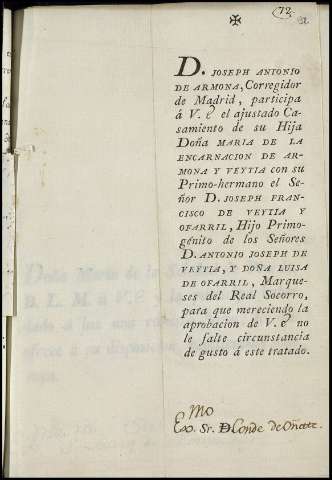 72
✠
D. JOSEPH ANTONIO
DE ARMONA, Corregidor
de Madrid, participa
á V. e el ajustado Ca-
samiento de su Hija
Doña MARIA DE LA
ENCARNACION DE AR-
MONA Y VEYTIA con su
Primo-hermano el Se-
ñor D. JOSEPH FRAN-
CISCO DE VEYTIA Y
OFARRIL, Hijo Primo-
génito de los Señores
D. ANTONIO JOSEPH DE
VEYTIA, Y DOÑA LUISA
DE OFARRIL, Marque-
ses del Real Socorro,
para que mereciendo la
aprobacion de V. e no
le falte circunstancia
de gusto á este tratado.
Exmo. Sr. D. Conde de Oñate.